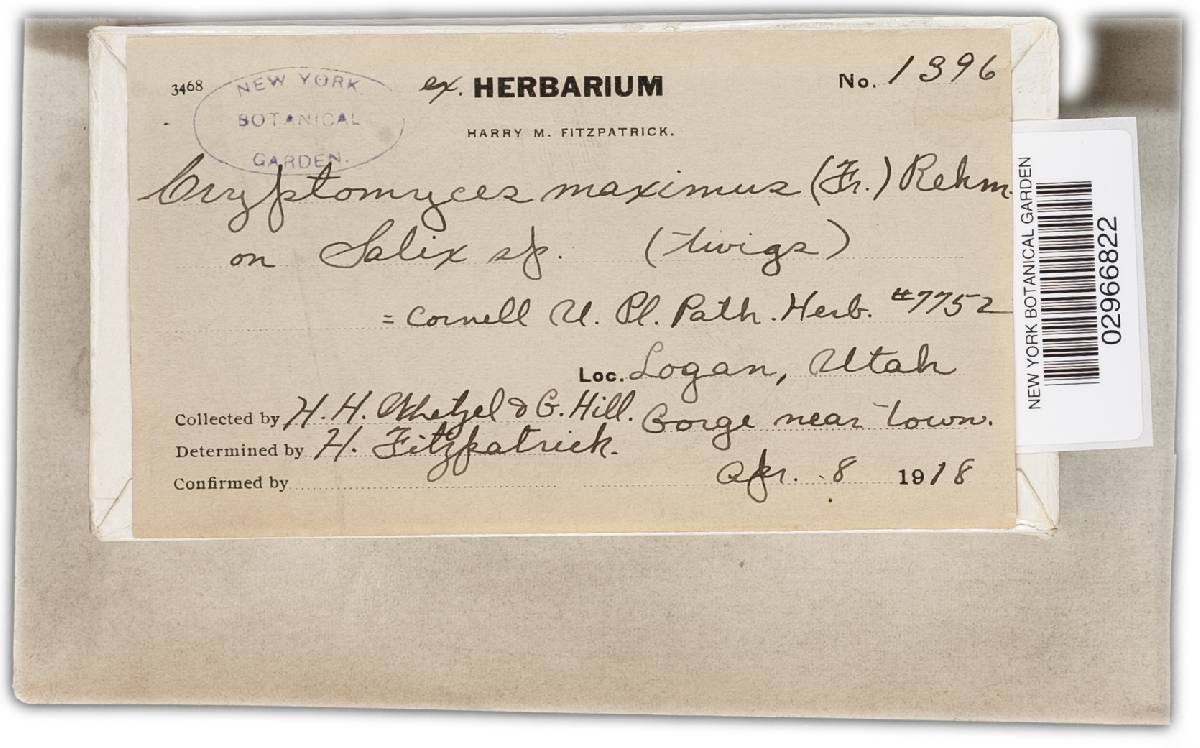 3468
NEW YORK
BOTANICAL
GARDEN.
ex. HERBARIUM
No. 1396
HARRY M. FITZPATRICK.
Cryptomyces maximus (Fr.) Rehm.
on Salix sp. (twigs)
= Cornell U. Pl. Path. Herb. #7752
Loc. Logan, Utah
Collected by H. H. Whetzel & G. Hill. Gorge near town.
Determined by H. Fitzpatrick.
Apr. 8 1918
Confirmed by
NEW YORK BOTANICAL GARDEN
02966822